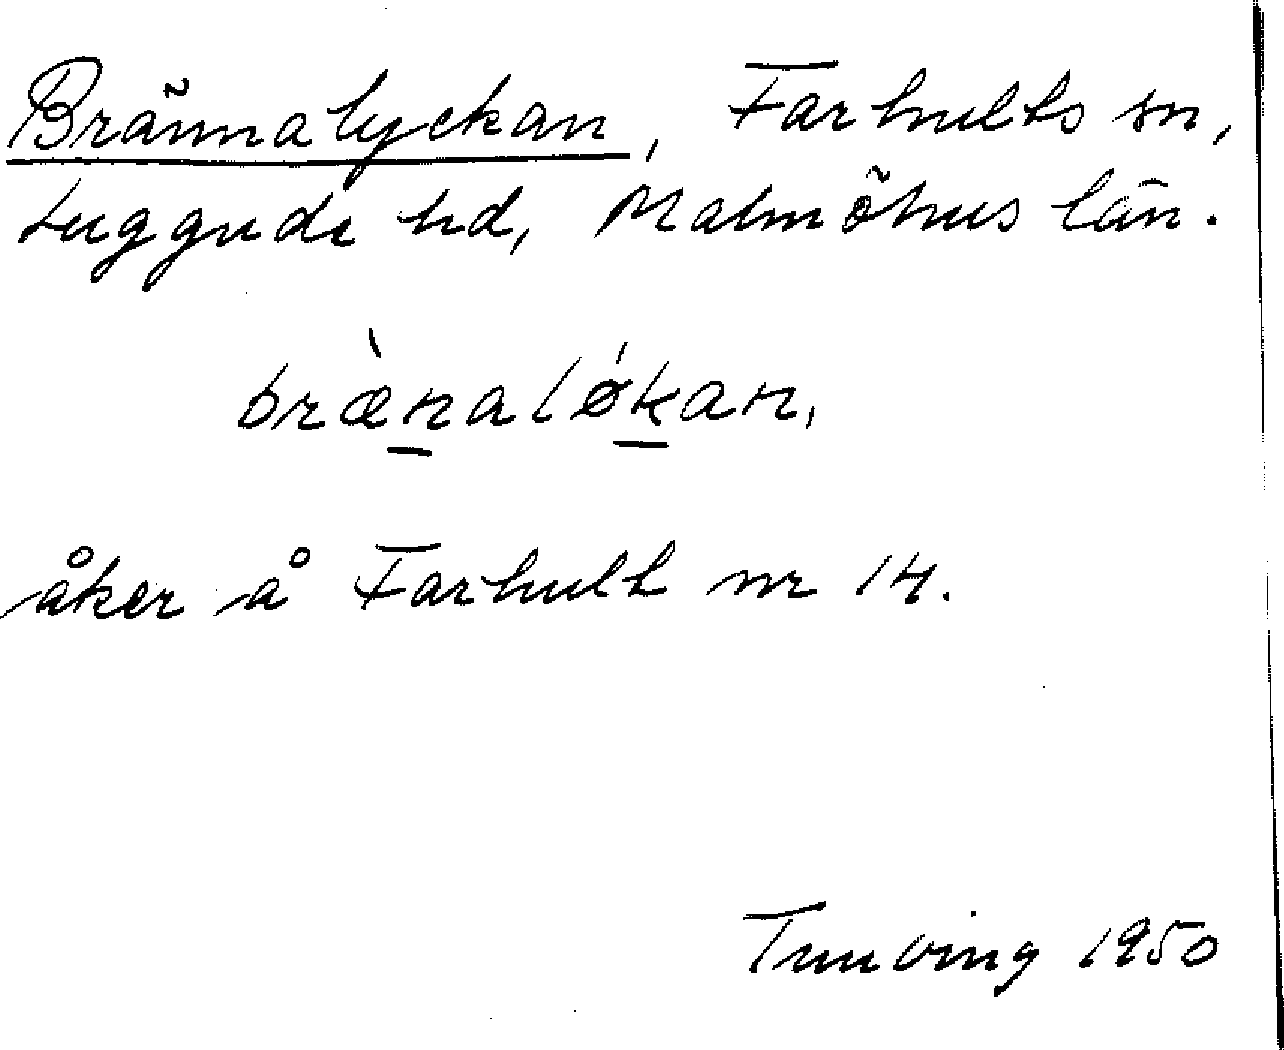 Brännalyckan, Farhults sn,
Luggude hd, Malmöhus län.
bræ̀n̲aløḱ̲an,
åker å Farhult nr 14.
Tunving 1950